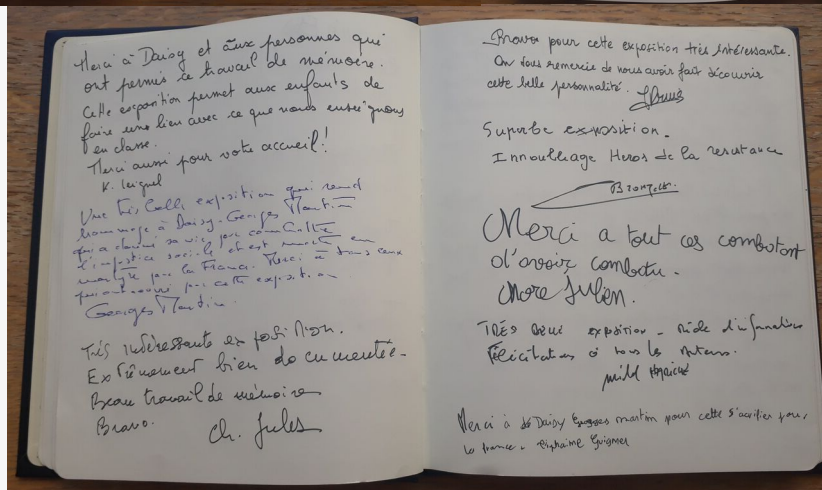 Merci à Daisy et aux personnes qui
ont permis ce travail de mémoire.
Cette exposition permet aux enfants de
faire une lien avec ce que nous enseignons
en classe.
Merci aussi pour votre accueil!
K.
Une très belle exposition qui rend
hommage à Daisy-Georges Martin
qui a donné sa vie pour combattre
l'injustice sociale et est mort en
martyr pour la France. Merci à tous ceux
qui ont œuvré pour cette exposition
Georges Martin.
Très intéressante exposition.
Extrêmement bien documentée.
Beau travail de mémoire
Bravo.
Ch. Jules
Bravo pour cette exposition très intéressante.
On vous remercie de nous avoir fait découvrir
cette belle personnalité.
Superbe exposition.
Heros de la resistance
Merci a tout ces combatant
d'avoir combatu.
Julien.
TRÈS exposition - d'informations
Félicitations à tous les
Merci à Daisy martin pour cette pour
la france.